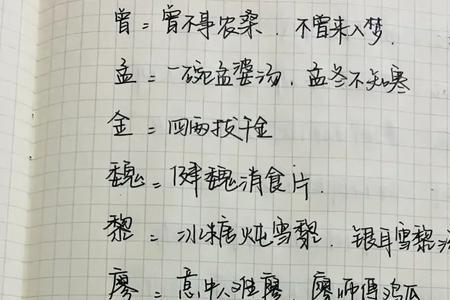 曾 = 曾不事农桑. 不曾来入梦.
孟 = 一碗孟婆汤. 孟冬不知寒
金 = 四两拨千金
魏 = 健魏消食片.
黎 = 冰糖炖雪黎. 银耳雪黎
廖 = 意中人难廖. 廖师傅